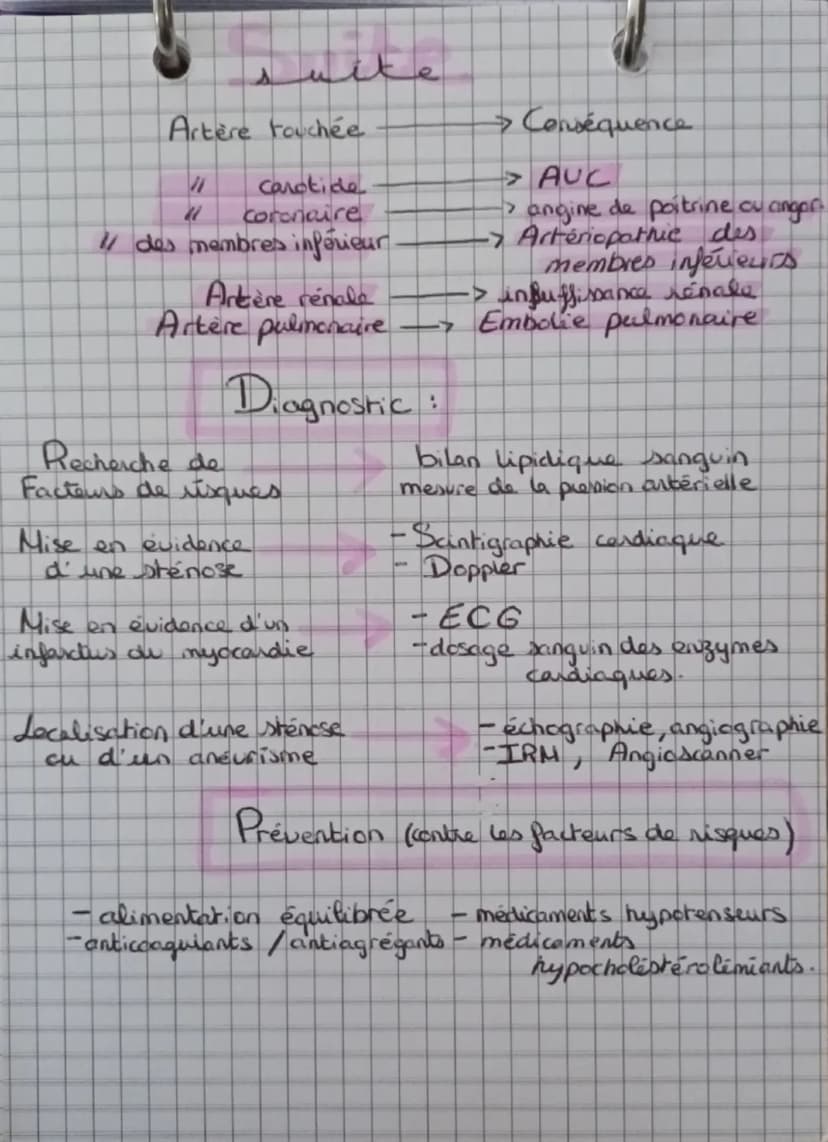 Suite
Artère touchée → Conséquence
" carotide → AUC
" coronaire → angine de poitrine ou angor.
" des membres inférieur → Artériopathie des
membres inférieurs
Artère rénale → insuffisance rénale
Artère pulmonaire → Embolie pulmonaire
Diagnostic :
Recherche de → bilan lipidique sanguin
Facteurs de risques mesure de la pression artérielle
Mise en évidence → - Scintigraphie cardiaque
d'une sténose - Doppler
Mise en évidence d'un → - ECG
infarctus du myocardie - dosage sanguin des enzymes
cardiaques.
Localisation d'une sténose → - échographie, angiographie
ou d'un anévrisme - IRM, Angioscanner
Prévention (contre les facteurs de risques)
- alimentation équilibrée - médicaments hypotenseurs
- anticoagulants / antiagrégants - médicaments
hypocholéstérolimiants.